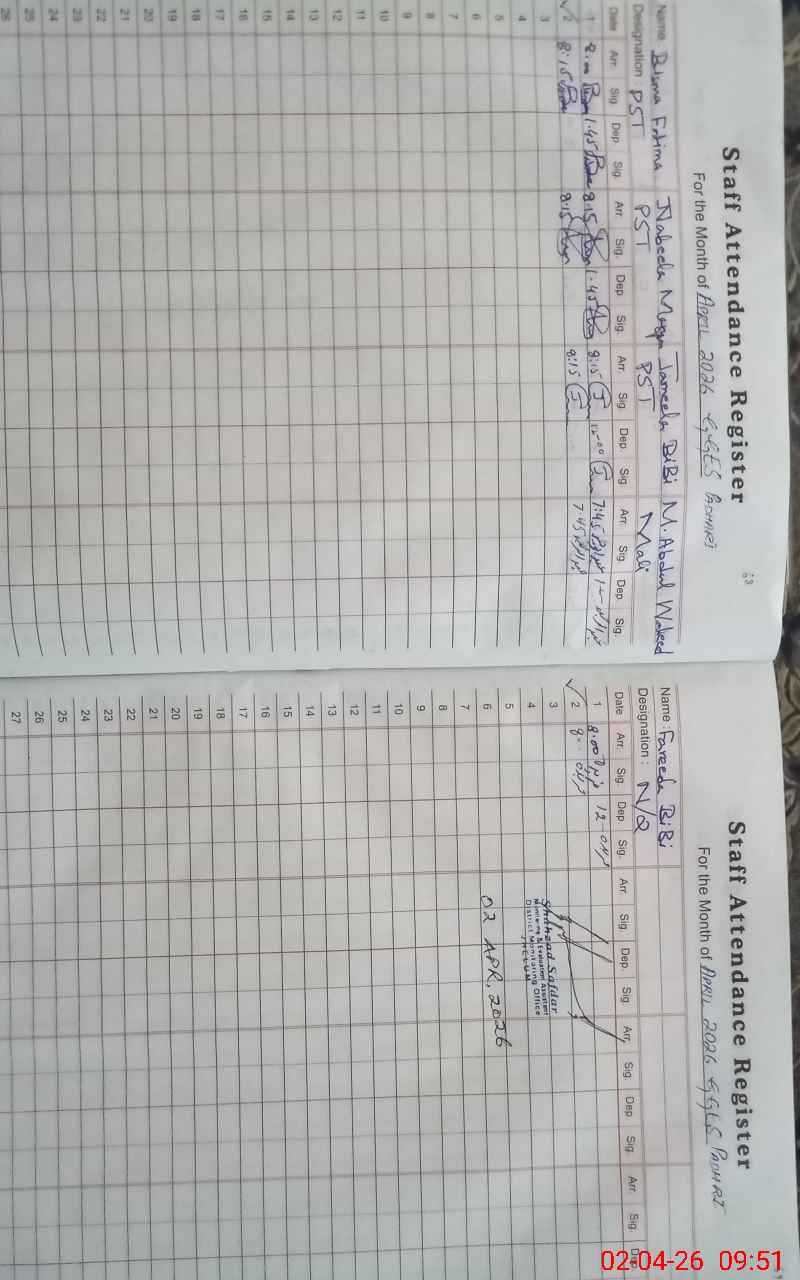 Staff Attendance Register
For the Month of APRIL 2026 GGES PADHARI
Name Bisma Fatima Nabeela Jameela BiBi M. Abdul Waheed
Designation : PST PST PST Mali
Date Arr. Sig. Dep Sig. Arr. Sig. Dep Sig. Arr. Sig Dep. Sig Arr. Sig Dep Sig.
1 8:00 1:45 8:15 1:45 8:15 12-00 7:45 12
2 8:15 8:15 8:15 7:45
3
4
5
6
7
8
9
10
11
12
13
14
15
16
17
18
19
20
21
22
23
24
25
26
Staff Attendance Register
For the Month of APRIL 2026 GGES PADHARI
Name : Fareeda BiBi
Designation : N/Q
Date Arr. Sig. Dep Sig. Arr. Sig Dep. Sig Arr. Sig. Dep Sig. Arr. Sig. Dep
1 8:00 12
2
3
4
5
6
7
8
9
10
11
12
13
14
15
16
17
18
19
20
21
22
23
24
25
26
27
Shahzad Safdar
Monitoring & Evaluation Assistant
District Monitoring Office
JHELUM
02 APR, 2026
02-04-26 09:51